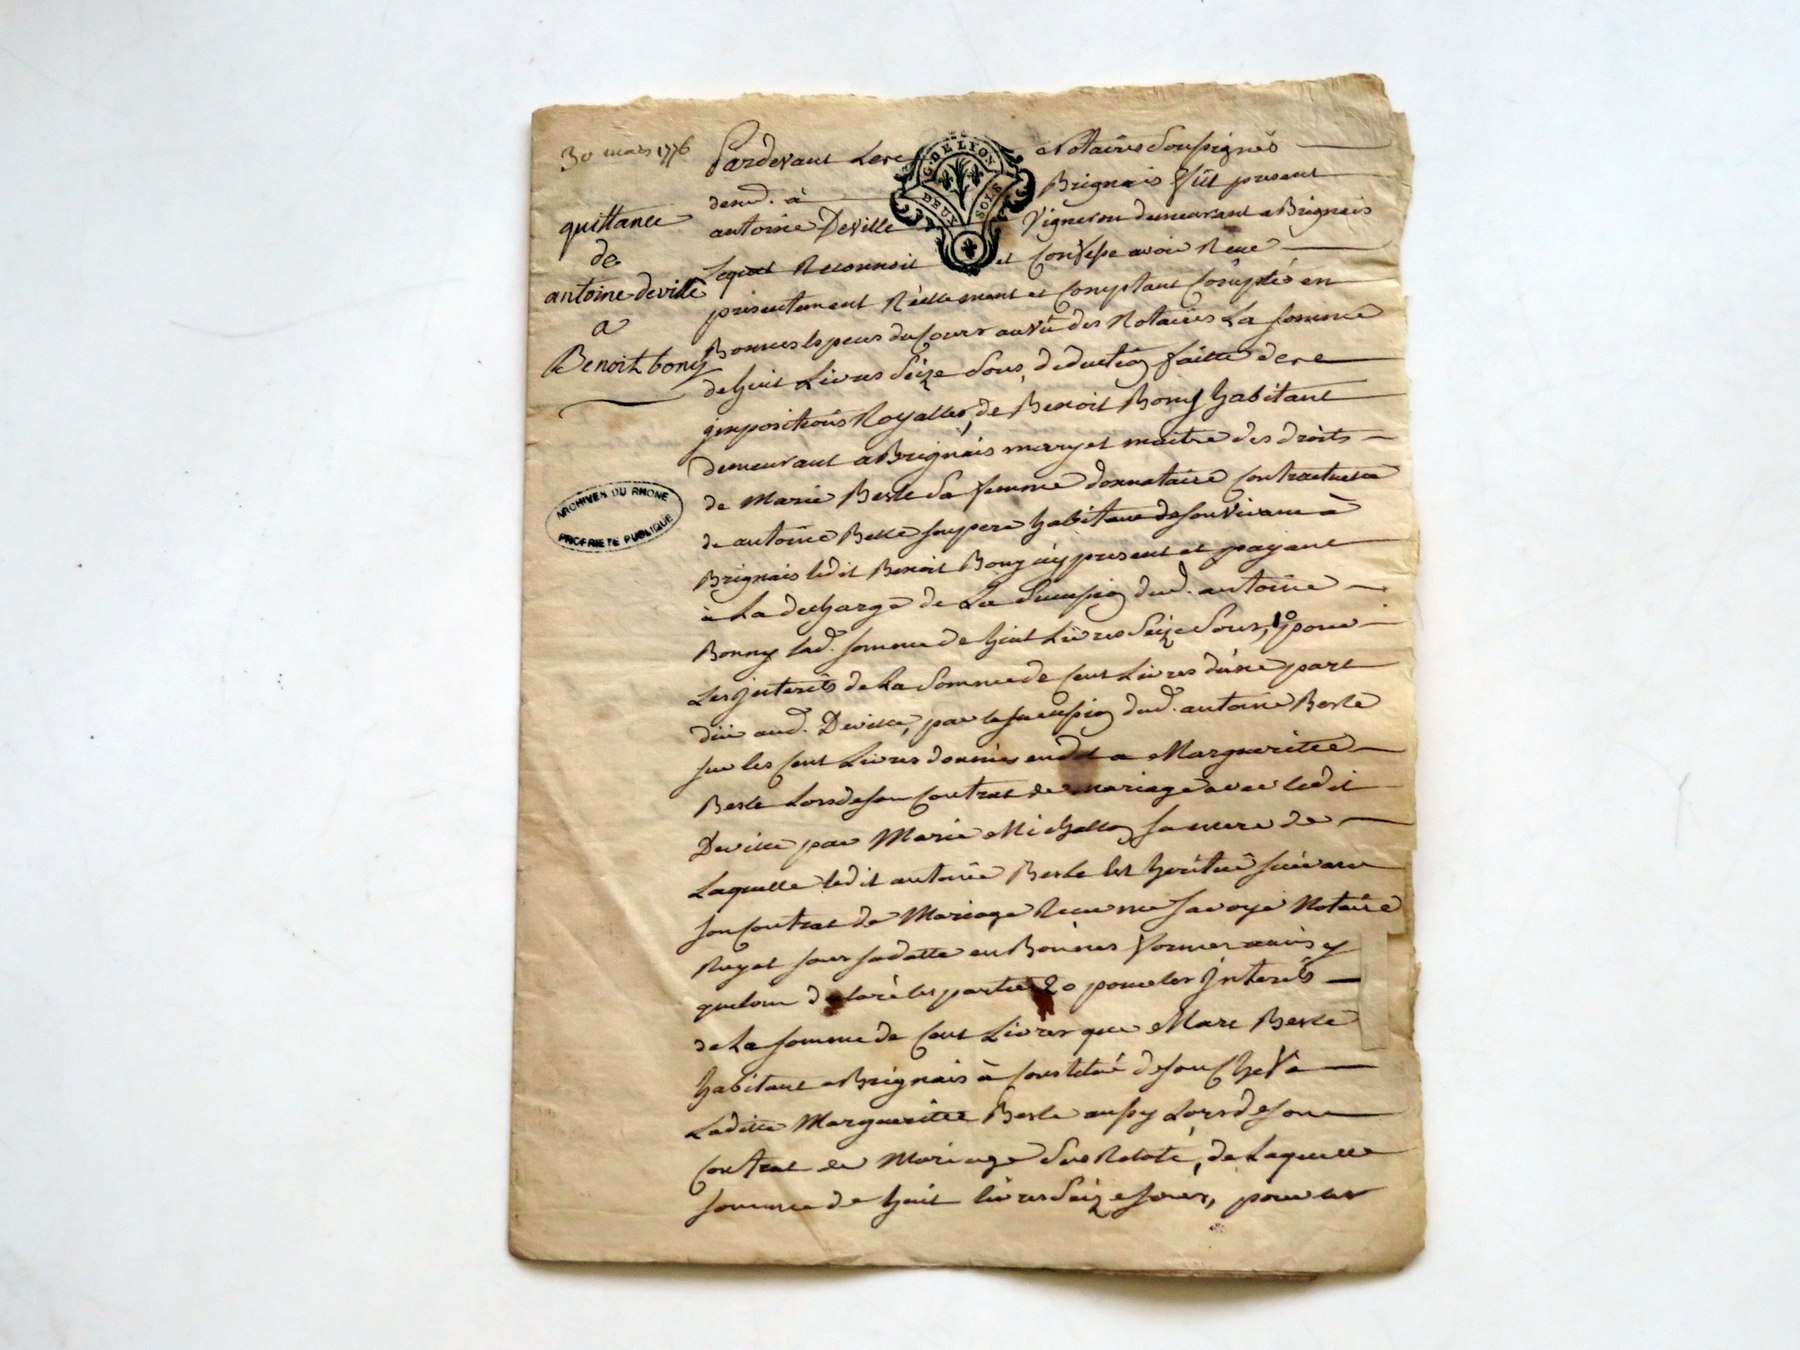 30 mars 1776
quittance
de
antoine deville
a
Benoit bony
ARCHIVES DU RHONE
PROPRIETE PUBLIQUE
G. DE LYON
DEUX SOLS
Pardevant Les Notaires Soussignés
demt. à Brignais fût present
antoine Deville Vigneron demeurant a Brignais
Lequel Reconnoit et Confesse avoir Reçu
presentement Réellement et Comptant Comptée en
Bonnes especes du Cours au vû des Notaires La somme
de huit Livres Seize Sous, deduction faitte de
jmpositions Royalles, de Benoit Bony habitant
demeurant a Brignais mary et maitre des droits
de Marie Berle Sa femme donnataire Contractuelle
de antoine Berle son pere habitant de son vivant à
Brignais ledit Benoit Bony icy present et payant
à La decharge de La Succession dud. antoine
Bonny lad. somme de huit Livres Seize Sous, 1o pour
Les jnterêts de La Somme de Cent Livres d'une part
düe aud. Deville, par la succession dud. antoine Berle
sur les Cent Livres donnés en dot a Margueritte
Berle Lors de son Contrat de mariage avec ledit
Deville par Marie Michallon sa mere de
Laquelle ledit antoine Berle est heritier suivant
son Contrat de Mariage Recu me Savoye Notaire
Royal sous sa datte en Bonnes formes
que l'ont declaré les parties 2o pour les Jnterêts
de La somme de Cent Livres que Marc Berle
habitant a Brignais à Constitué de son Chef à
Laditte Margueritte Berle aussy Lors de son
Contrat de Mariage Sus Relaté, de Laquelle
somme de huit livres Seize sous, pour les